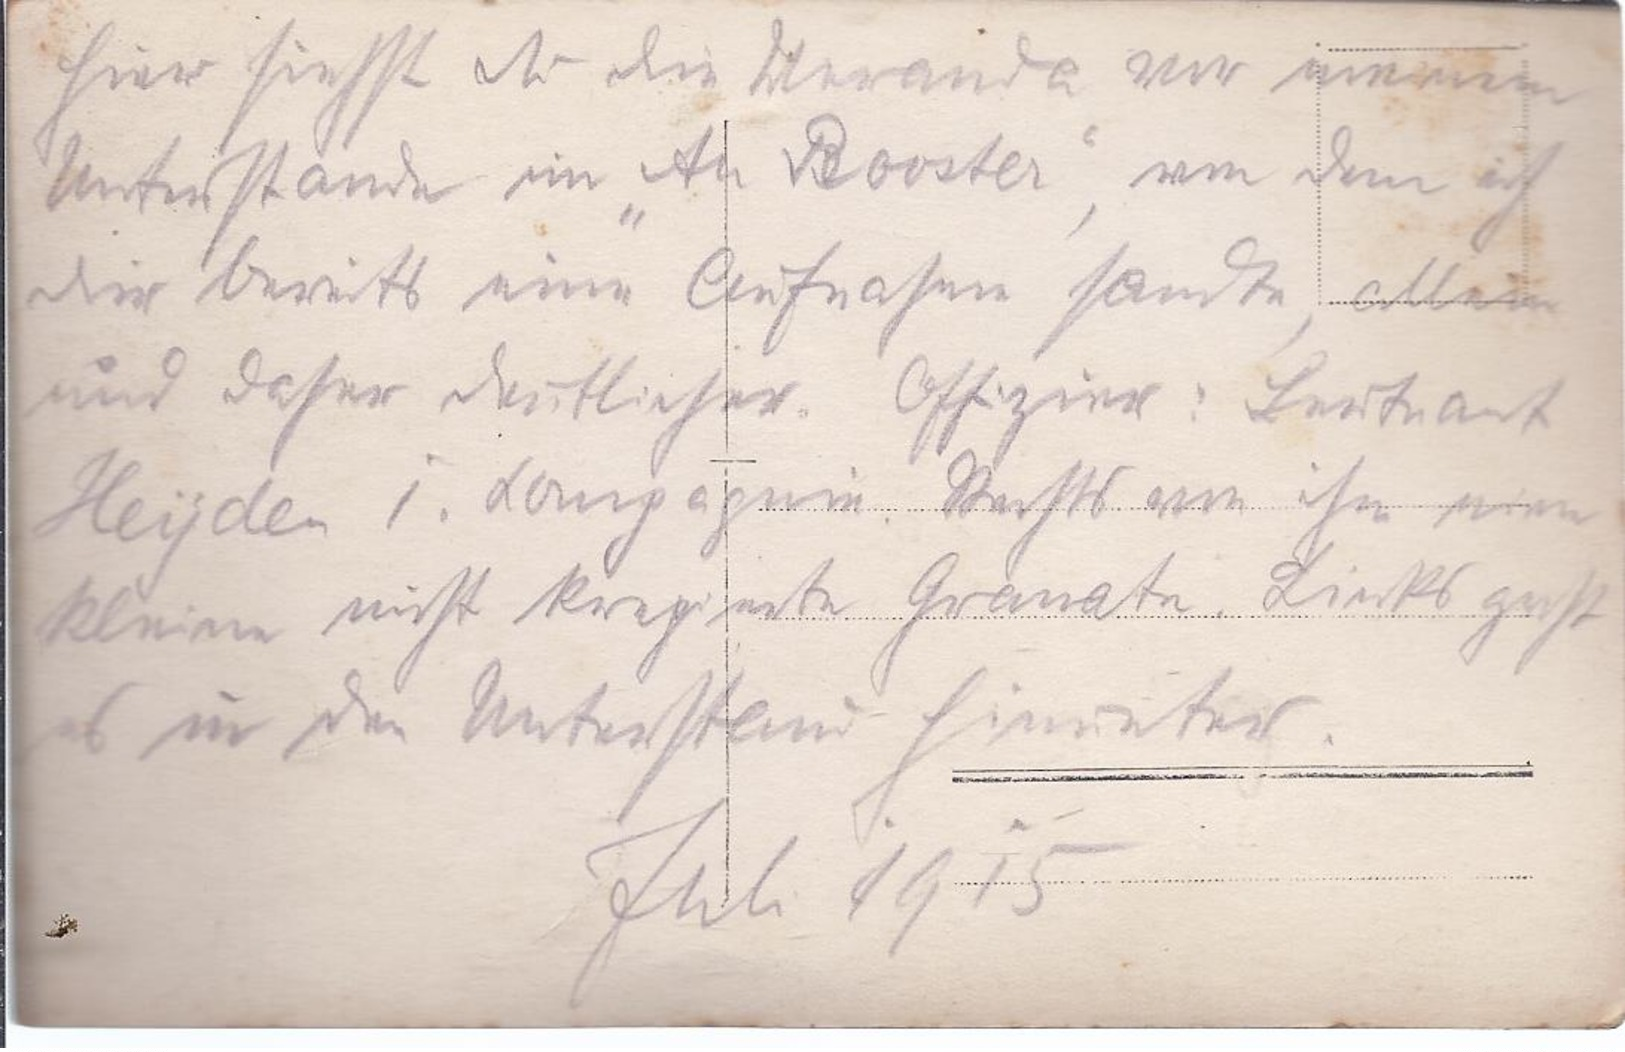 Hier siehst du die Veranda vor meinem
Unterstande im „An Booster“, von dem ich
dir bereits eine Aufnahme sandte, allein
und daher deutlicher. Offizier: Leutnant
Heyden 1. Kompagnie. Rechts von ihm eine
kleine nicht krepierte Granate. Links geht
es in den Unterstand hinunter.
Juli 1915